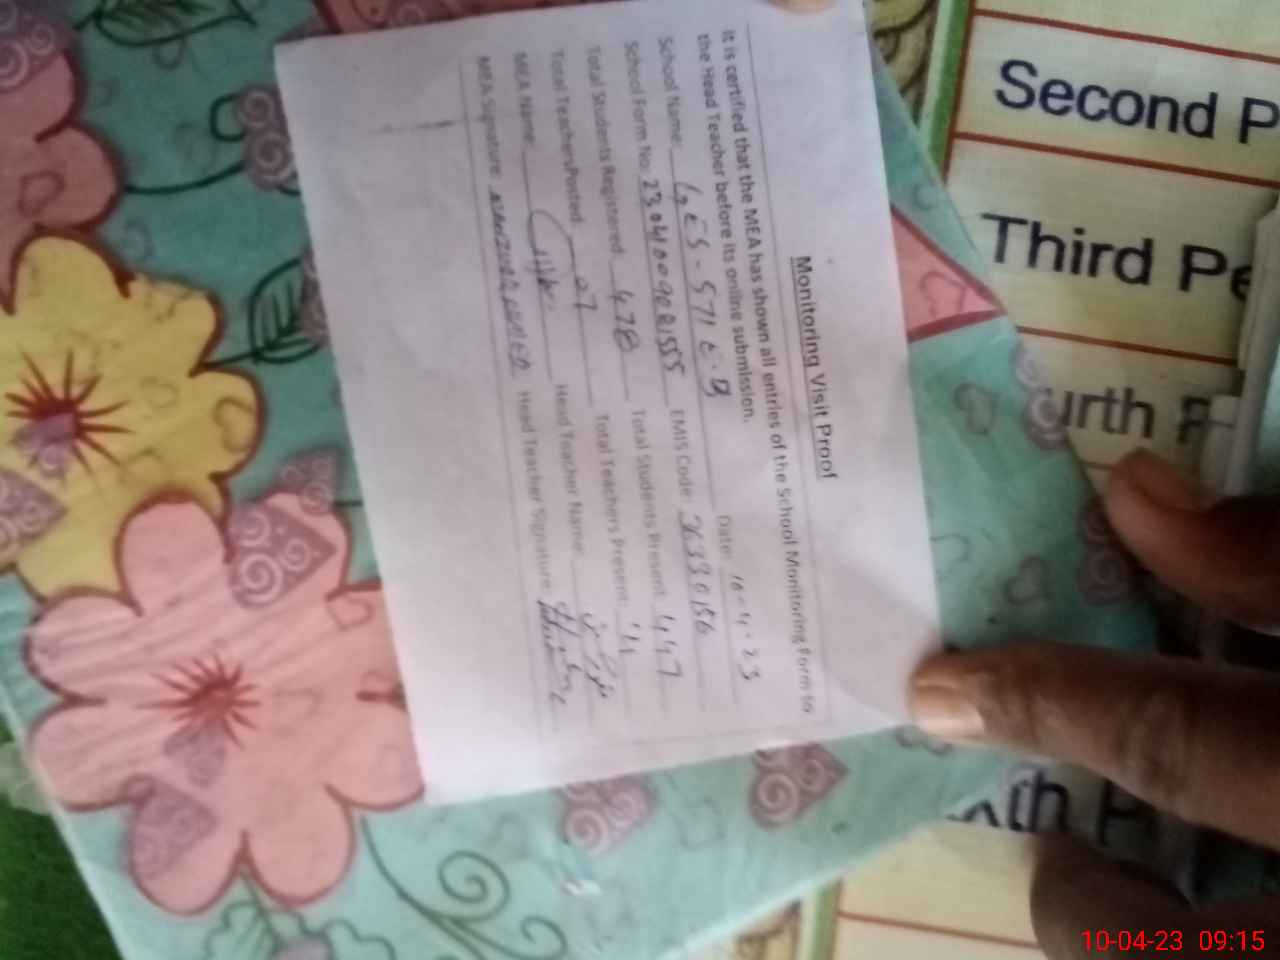 Monitoring Visit Proof
It is certified that the MEA has shown all entries of the School Monitoring Form to
the Head Teacher before its online submission.
School Name: GES - 571 E.B Date: 10-4-23
School Form No: EMIS Code: 36330156
Total Students Registered 478 Total Students Present 447
Total TeachersPosted Total Teachers Present:
MEA Name: Head Teacher Name:
MEA Signature: Head Teacher Signature:
Second P
Third Pe
urth P
xth P
10-04-23 09:15